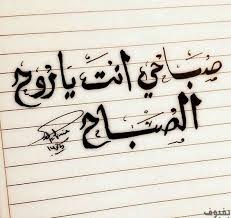 صباحي انت يا روح
الصباح
بفبوف